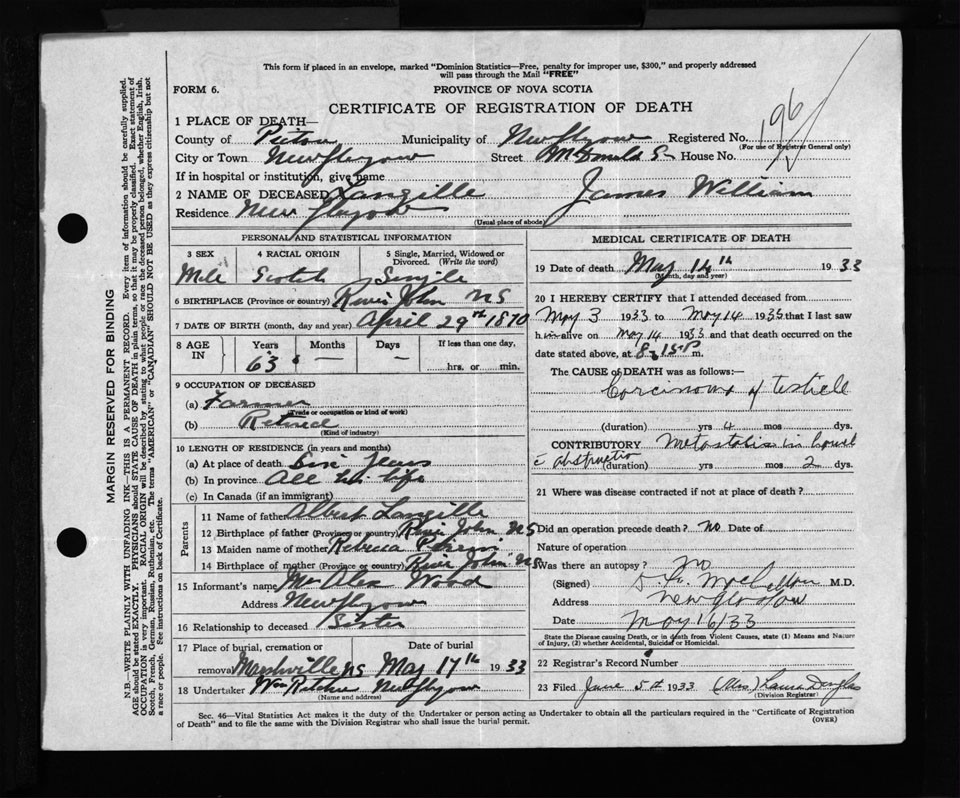 This form if placed in an envelope, marked "Dominion Statistics—Free, penalty for improper use, $300," and properly addressed
will pass through the Mail "FREE"
FORM 6.
PROVINCE OF NOVA SCOTIA
CERTIFICATE OF REGISTRATION OF DEATH
1 PLACE OF DEATH—
County of Pictou Municipality of New Glasgow Registered No. 196
(For use of Registrar General only)
City or Town New Glasgow Street McDonald St House No.
If in hospital or institution, give name
2 NAME OF DECEASED Langille James William
Residence New Glasgow
(Usual place of abode)
PERSONAL AND STATISTICAL INFORMATION
3 SEX
4 RACIAL ORIGIN
5 Single, Married, Widowed or Divorced. (Write the word)
Male Scotch Single
6 BIRTHPLACE (Province or country) River John NS
7 DATE OF BIRTH (month, day and year) April 29th 1870
8 AGE IN
Years
Months
Days
If less than one day,
63 — —
hrs. or min.
9 OCCUPATION OF DECEASED
(a) Farmer
(Trade or occupation or kind of work)
(b) Retired
(Kind of industry)
10 LENGTH OF RESIDENCE (in years and months)
(a) At place of death years
(b) In province All his life
(c) In Canada (if an immigrant)
Parents
11 Name of father Albert Langille
12 Birthplace of father (Province or country) River John NS
13 Maiden name of mother Rebecca
14 Birthplace of mother (Province or country) River John NS
15 Informant's name Mrs Alex Wood
Address New Glasgow
16 Relationship to deceased Sister
17 Place of burial, cremation or
Date of burial
removal Marshville NS May 17th 1933
18 Undertaker Wm Ritchie New Glasgow
(Name and address)
MEDICAL CERTIFICATE OF DEATH
19 Date of death May 14th 1933
(Month, day and year)
20 I HEREBY CERTIFY that I attended deceased from
May 3 1933 to May 14 1933 that I last saw
him alive on May 14 1933 and that death occurred on the
date stated above, at 8.15 P m.
The CAUSE of DEATH was as follows:—
Carcinoma of testicle
(duration) yrs 4 mos dys.
CONTRIBUTORY Metastasis in bowel
c̄ obstruction (duration) yrs mos 2 dys.
21 Where was disease contracted if not at place of death?
Did an operation precede death? No Date of
Nature of operation
Was there an autopsy? No
(Signed) M.D.
Address New Glasgow
Date May 16/33
State the Disease causing Death, or in death from Violent Causes, state (1) Means and Nature
of Injury, (2) whether Accidental, Suicidal or Homicidal.
22 Registrar's Record Number
23 Filed June 5th 1933 (Mrs) Laura Douglas
(Division Registrar)
Sec. 46—Vital Statistics Act makes it the duty of the Undertaker or person acting as Undertaker to obtain all the particulars required in the "Certificate of Registration
of Death" and to file the same with the Division Registrar who shall issue the burial permit.
(OVER)
MARGIN RESERVED FOR BINDING
N.B.—WRITE PLAINLY WITH UNFADING INK—THIS IS A PERMANENT RECORD. Every item of information should be carefully supplied.
AGE should be stated EXACTLY. PHYSICIANS should STATE CAUSE OF DEATH in plain terms, so that it may be properly classified. Exact statement of
OCCUPATION is very important. RACIAL ORIGIN will be described by stating to what people or race the deceased person belonged, whether English, Irish,
Scotch, French, German, Russian, Ruthenian, etc. The terms "AMERICAN" or "CANADIAN" SHOULD NOT BE USED as they express citizenship but not
a race or people. See instructions on back of Certificate.